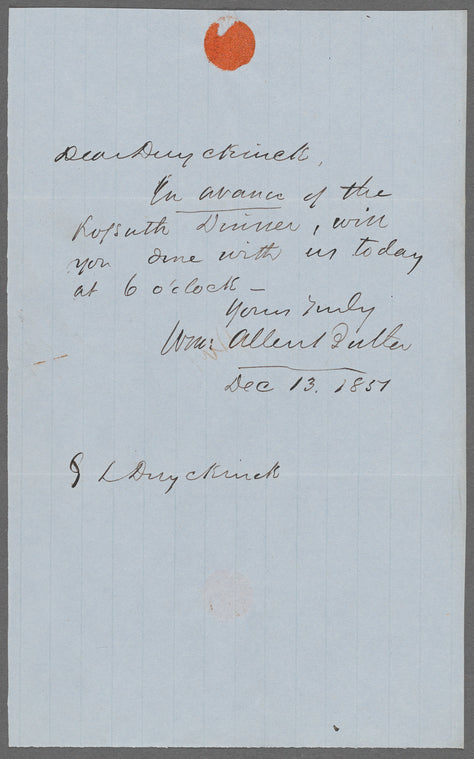 Dear Duyckinck,
In avance of the
Koſsuth Dinner, will
you dine with us today
at 6 o'clock —
Yours Truly
Wm: Allen Butler
Dec 13. 1851
G L Duyckinck